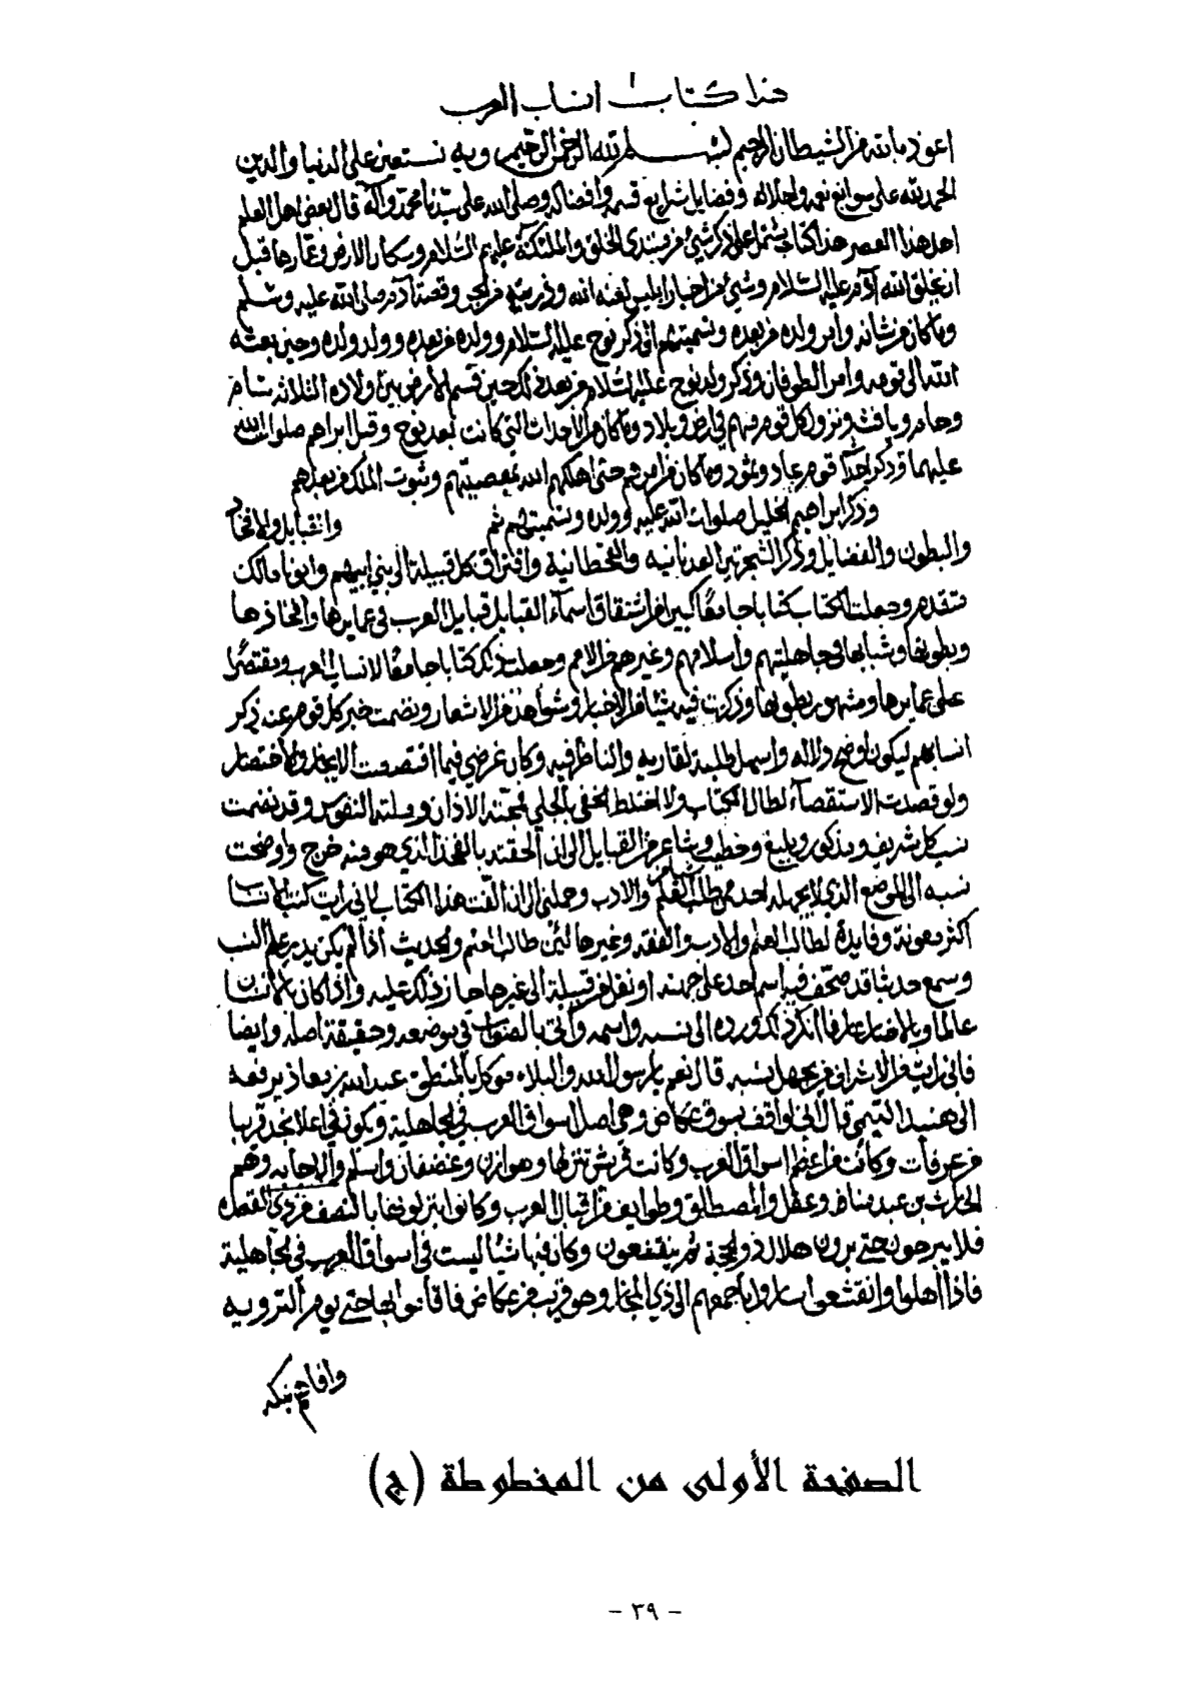 هذا كتاب انساب العرب
اعوذ بالله من الشيطان الرجيم بسم الله الرحمن الرحيم وبه نستعين على الدنيا والدين
الحمد لله على سوابغ نعمه واجلاله وفضايل شرايع قسمه وافضاله وصلى الله على سيدنا محمد وآله قال بعض اهل العلم
اهل هذا العصر هذا كتاب يشتمل على ذكر شيء من مبتدى الخلق والملئكة عليهم السلام وسكان الارض وعمارها قبل
ان يخلق الله آدم عليه السلام وشيء من اخبار ابليس لعنه الله وذريته من الجن وقصة آدم صلى الله عليه وسلم
وما كان من شانه وامر ولده من بعده وتسميتهم الى ذكر نوح عليه السلام وولده من بعده وولد ولده وحين بعثه
الله الى قومه وامر الطوفان وذكر ولد نوح عليه السلام من بعد ذلك حين قسم الارض بين اولاده الثلاثه سام
وحام ويافث ونزول كل قوم منهم في ارض وبلاد وما كان من الأحداث التي كانت بعد نوح وقبل ابراهيم صلوات الله
عليهما وذكر قوم عاد وثمود وما كان من امرهم حتى اهلكهم الله بمعصيتهم وثبوت الملك من بعدهم
وذكر ابراهيم الخليل صلوات الله عليه وولده وتسميتهم ثم والقبايل والافخاذ
والبطون والفضايل وذكر الشجرتين العدنانيه والقحطانية وافتراق كل قبيلة الى بني ابيهم وابونا مالك
متقدم وجعلت الكتاب كتابا جامعا كبيرا من اشتقاق اسماء القبايل قبايل العرب في عمايرها وافخاذها
وبطونها وشبابها في جاهليتهم واسلامهم وغيرهم من الامم وجعلت ذلك كتابا جامعا لانساب العرب ومقتصرا
على عمايرها ومشهور بطونها وذكرت فيه شيئا من الاخبار وشواهد من الاشعار ونضمت خبر كل قوم عند ذكر
انسابهم ليكون اوضح دلاله واسهل طلبة لقاريه والناظر فيه وكان غرضي فيما اقتصصت الايجاز والاختصار
ولو قصدت الاستقصآء لطال الكتاب ولا اختلط الخفي بالجلي فمجته الاذان وملته النفوس وقد نضمت
نسب كل شريف ومذكور وبليغ وخطيب وشاعر من القبايل الى ان الحقته بالفخذ الذي هو منه خرج واوضحت
نسبه الى الموضع الذي لا يجهله احد ممن طلب العلم والادب وحملني الى ان الفت هذا الكتاب لاني رايت كتب الانساب
اكثر معونة وفايدة لطالب العلم والادب والفقه وغيرها لئن طالب العلم والحديث اذا لم يكن يدري علم النسب
وسمع حديثا قد صحف فيه اسم احد على جهته او نقل من قبيلة الى غيرها جاز ذلك عليه واذا كان بالانساب
عالما وبالاخبار عارفا انكر ذلك ورده الى نسبه واسمه وأتى بالصواب في موضعه وحقيقة اصله وايضا
فاني رايت من الاشراف من يجهل نسبه قال نعم يا رسول الله والبلاء موكل بالمنطق عبد الله بن معاذ يرفعه
الى هنيد التيمي قال اني لواقف بسوق عكاض وهي اصل اسواق العرب في الجاهلية وتكون في اعلا نجد قريبا
من عرفات وكانت من اعظم اسواق العرب وكانت قريش تنزلها وهوازن وغضفان واسلم والاحابه وهم
الحارث بن عبد مناف وعقل والمصطلق وطوايف من اقبال العرب وكانوا ينزلونها بالنصف من ذي القعده
فلا يبرحون حتى يرون هلال ذو الحجة ثم ينقشعون وكان فيها اشيا ليست في اسواق العرب في الجاهلية
فاذا اهلوا وانقشعوا ساروا باجمعهم الى ذي المجاز وهو قريب من عكاض فاقاموا بها حتى يوم التروية
وافاهم بمكه
الصفحة الأولى من المخطوطة (ج)
- ٣٩ -